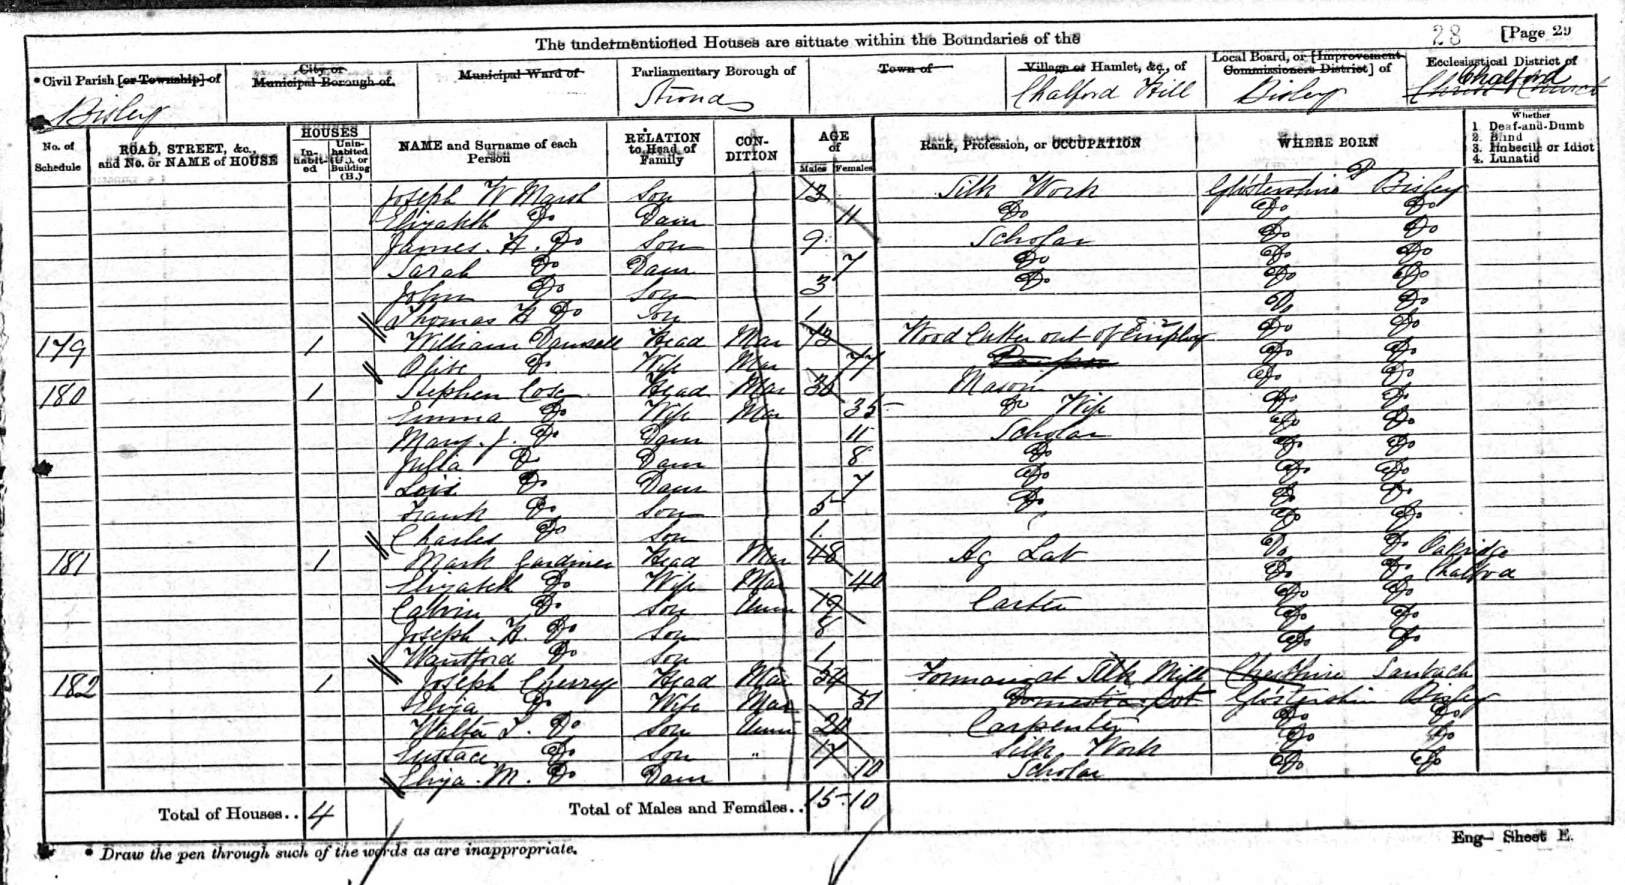 The undermentioned Houses are situate within the Boundaries of the 28 [Page 29
* Civil Parish [or Township] of
Bisley
City or Municipal Borough of
Municipal Ward of
Parliamentary Borough of
Stroud
Town of
Village or Hamlet, &c., of
Chalford Hill
Local Board, or [Improvement Commissioners District] of
Bisley
Ecclesiastical District of
Chalford
Christ Church
No. of Schedule
ROAD, STREET, &c., and No. or NAME of HOUSE
HOUSES
Inhabited
Uninhabited (U.), or Building (B.)
NAME and Surname of each Person
RELATION to Head of Family
CONDITION
AGE of
Males Females
Rank, Profession, or OCCUPATION
WHERE BORN
Whether
1 Deaf-and-Dumb
2. Blind
3. Imbecile or Idiot
4. Lunatic
Joseph W Marsh Son 13 Silk Work Glo'stershire Bisley
Elizabth Do Daur 11 Do Do Do
James. H. Do Son 9 Scholar Do Do
Sarah Do Daur 7 Do Do Do
John Do Son 3 Do Do Do
Thomas H Do Son 1 Do Do
179 1 William Head Mar 73 Wood Cutter out of Employ Do Do
Do Wife Mar 77 Do Do
180 1 Stephen Head Mar Mason Do Do
Emma Do Wife Mar 35 Do Wife Do Do
Mary. J. Do Daur 11 Scholar Do Do
Julia Do Daur 8 Do Do Do
Lois Do Daur 7 Do Do Do
Frank Do Son 5 Do Do Do
Charles Do Son 1 Do Do
181 1 Mark Gardiner Head Mar 48 Ag Lab Do Do Oakridge
Elizabeth Do Wife Mar 40 Do Do Chalford
Calvin Do Son Unm 19 Carter Do Do
Joseph. H. Do Son 8 Do Do
Wantford Do Son 1 Do Do
182 1 Joseph Cherry Head Mar 54 Forman at Silk Mill Cheshire Sanbach
Do Wife Mar 51 Glo'stershire Bisley
Walter Do Son Unm 20 Carpenter Do Do
Eustace Do Son " 17 Silk Work Do Do
Eliza. M. Do Daur 10 Scholar Do Do
Total of Houses.. 4 Total of Males and Females.. 15 10
* Draw the pen through such of the words as are inappropriate.
Eng— Sheet E.